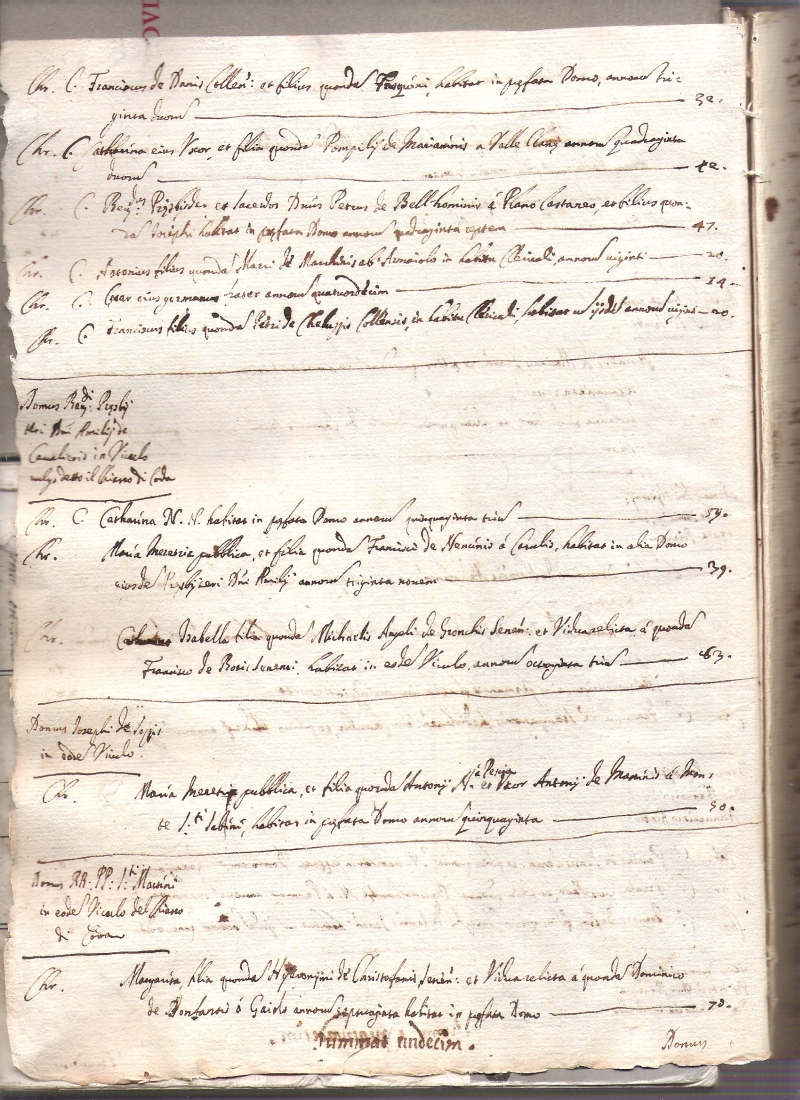 Chr. C. Franciscus de Danis Collen: et filius quondā Pasquini, habitat in pnfata Domo, annorū tri-
ginta duorū 32.
Chr. C. Catharina eius Uxor, et filia quondā Pompilij de Mariannis a Valle annorū quadraginta
duorū 42.
Chr. C. Revdus Presbiter et sacerdos Dnus Petrus de Bell'hominis á Plano Castaneo, et filius quon-
dā Josephi habitat in pnfata Domo annorū quadraginta septem 47.
Chr. C. Antonius filius quondā Marci de Marchinis ab in habitu Clericali, annorū viginti 20.
Chr. C. Cesar eius germanus frater annorū quatuordecim 14.
Chr. C. Franciscus filius quondā Petri de Collensis, in habitu Clericali, habitat ut annorū viginti 20.
Domus Revdi: Presby
teri Dni de
in Viculo
detto il Chiasso di Coda
Chr. C. Catharina N. N. habitat in pnfata Domo annorū 59.
Chr. Maria Meretrix pubblica, et filia quondā Francisci de Nencinis á Casulis, habitat in alia Domo
eiusdē Presbyteri Dni annorū triginta novem 39.
Chr. Isabella filia quondā Michaelis Angeli de Senen: et Vidua relicta á quondā
Francisco de Senensi, habitat in eodē Viculo, annorū octoginta trium 83.
Domus Josephi de
in eodē Viculo.
Chr. Maria Meretrix pubblica, et filia quondā Antonij N. et Uxor Antonij de á Mon-
te S.ti Sabini, habitat in pnfata Domo annorū quinquaginta 50.
Domus RR: PP: S.ti Martini
in eodē Viculo del Chiasso
di Coda
Chr. Margarita filia quondā Hyeronimi de Christofanis Senen: et Vidua relicta á quondā Dominico
de Bonfantis á annorū septuaginta habitat in pnfata Domo 70.
Summat undecim.
Domus